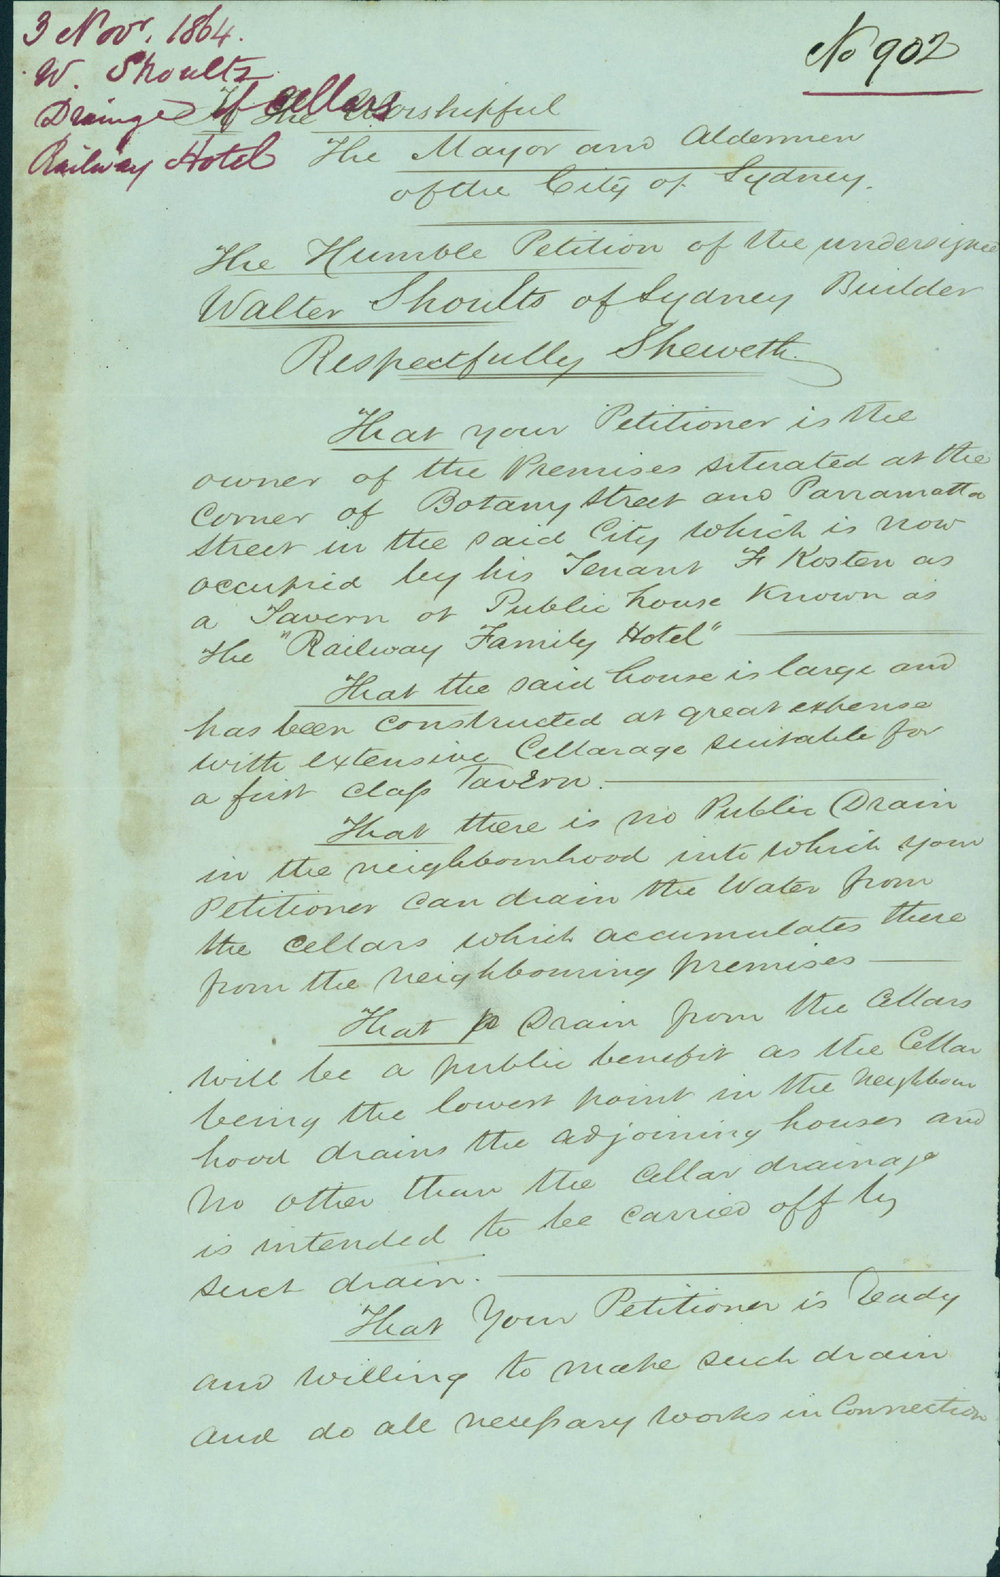 3 Novr. 1864.
W. Shoults
Drainge of cellars
Railway Hotel
No 902
To the Worshipful
The Mayor and Aldermen
of the City of Sydney.
The Humble Petition of the undersigned
Walter Shoults of Sydney Builder
Respectfully Sheweth.
That your Petitioner is the
owner of the Premises situated at the
Corner of Botany Street and Parramatta
Street in the said City which is now
occupied by his Tenant F Kosten as
a Tavern or Public house Known as
the "Railway Family Hotel"
That the said house is large and
has been constructed at great expense
with extensive Cellarage suitable for
a first class Tavern.
That there is no Public Drain
in the neighbourhood into which your
Petitioner can drain the Water from
the Cellars which accumulates there
from the neighbouring premises
That a Drain from the Cellars
will be a public benefit as the Cellar
being the lowest point in the Neighbour
hood drains the adjoining houses and
no other than the Cellar drainage
is intended to be carried off by
such drain.
That Your Petitioner is Ready
and willing to make such drain
and do all necessary works in Connection